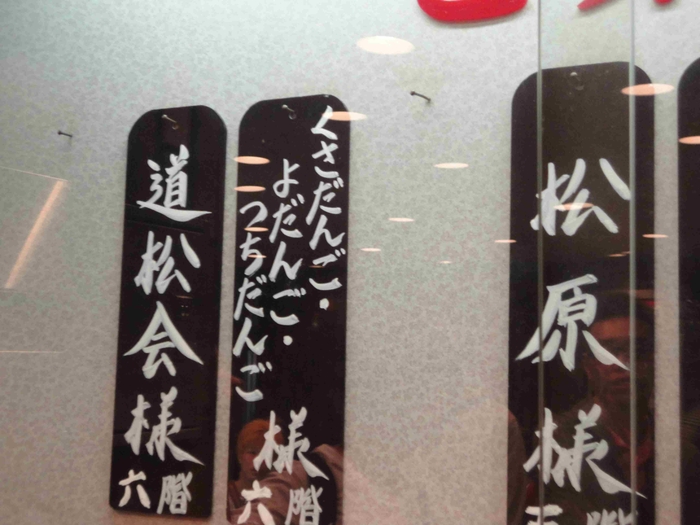 松原様
くさだんご・
よだんご・
つちだんご
様
六階
道松会様
六階